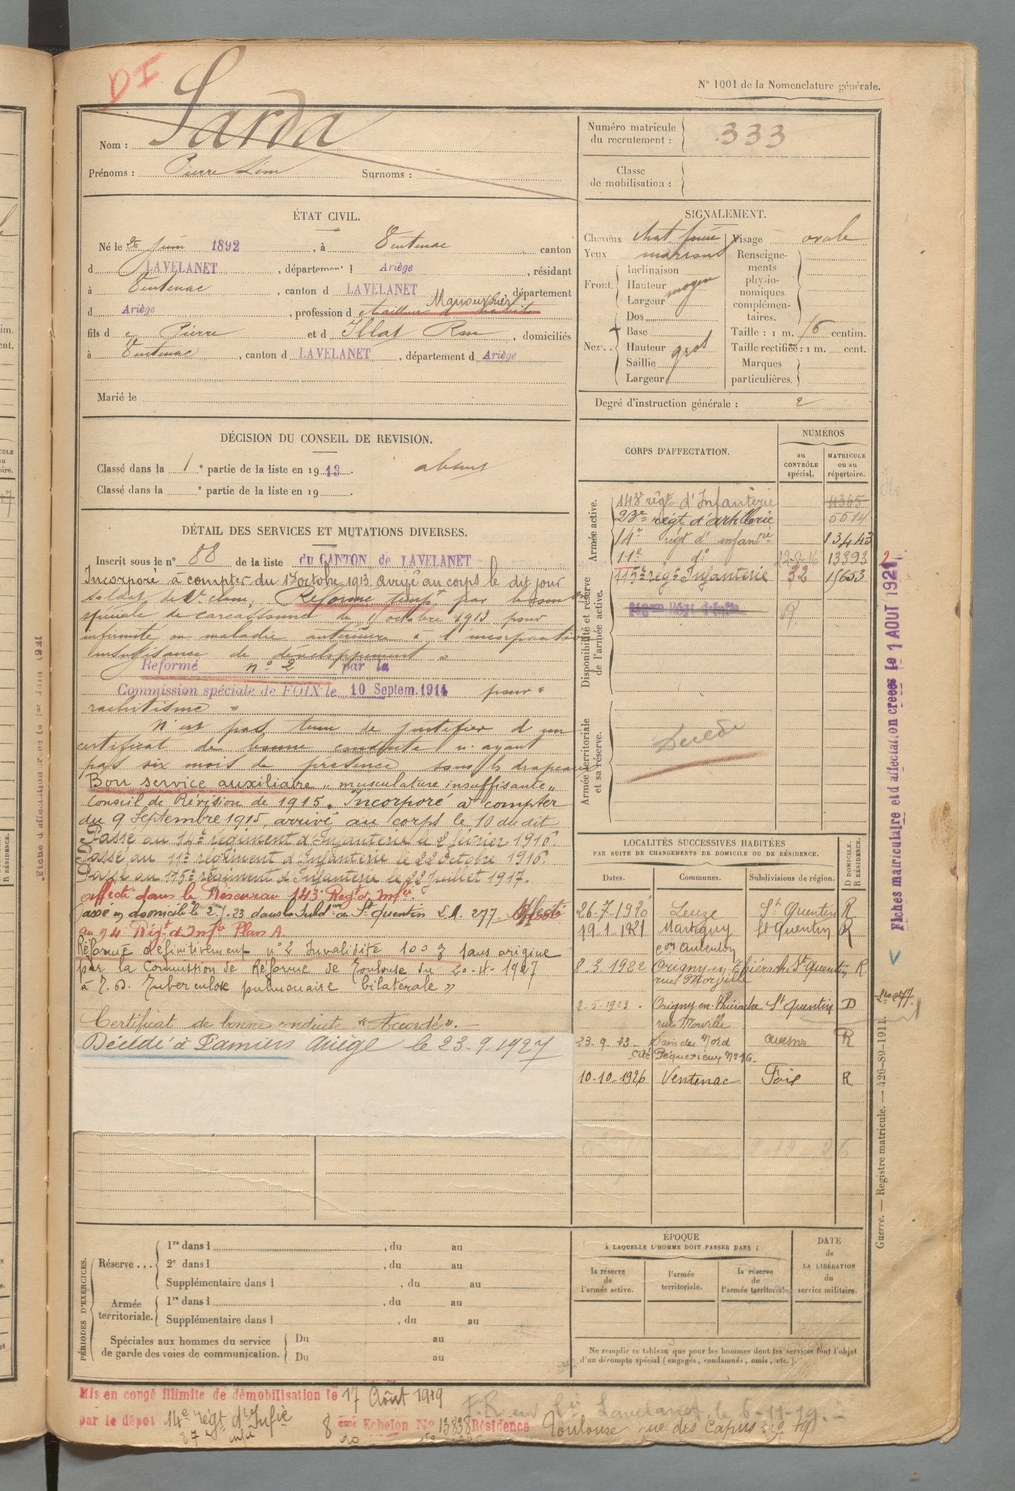 DI
N° 1001 de la Nomenclature générale.
Nom : Sarda
Prénoms : Pierre Surnoms :
Numéro matricule du recrutement : 333
Classe de mobilisation :
ÉTAT CIVIL.
Né le 26 juin 1892, à Ventenac canton
d LAVELANET, département d Ariège, résidant
à Ventenac, canton d LAVELANET, département
d Ariège, profession d Manouvrier
fils d e Pierre et d Illat Rose, domiciliés
à Ventenac, canton d LAVELANET, département d Ariège
Marié le
SIGNALEMENT.
Cheveux chat foncé
Yeux marrons
Front. Inclinaison
Hauteur moyen
Largeur
Nez. Dos
Base
Hauteur gros
Saillie
Largeur
Visage ovale
Renseignements physionomiques complémentaires.
Taille : 1 m. 76 centim.
Taille rectifiée : 1 m. cent.
Marques particulières.
Degré d'instruction générale : 2
DÉCISION DU CONSEIL DE REVISION.
Classé dans la 1e partie de la liste en 1913. absent
Classé dans la e partie de la liste en 19
DÉTAIL DES SERVICES ET MUTATIONS DIVERSES.
Inscrit sous le n° 88 de la liste du CANTON de LAVELANET
Incorporé à compter du octobre 1913. Arrivé au corps le dit jour
soldat de 2e classe, Réformé tempre par la Comm
spéciale de Carcassonne du 11 octobre 1913 pour
infirmité ou maladie antérieure à l'incorporation
Insuffisance de développement "
Réformé n° 2 par la
Commission spéciale de FOIX le 10 Septem. 1914 pour "
rachitisme "
N'est pas tenu de justifier d'un
certificat de bonne conduite n'ayant
pas six mois de présence sous les drapeaux
Bon service auxiliaire " musculature insuffisante "
Conseil de Révision de 1915. Incorporé à compter
du 9 Septembre 1915, arrivé au corps le 10 du dit
Passé au 14e régiment d'Infanterie le 2 février 1916.
Passé au 11e régiment d'Infanterie le 22 Octobre 1916.
Passé au 115e régiment d'Infanterie le 28 Juillet 1917.
affecté dans la Réserve au 143e Régt d'Infie
Passé en domicile 2.5.23 dans la Subdon de St Quentin S.A. 277 Affecté
au 94 Régt d'Infie Plan A
Réformé définitivement n° 2 Invalidité 100 % sans origine
par la Commission de Réforme de Toulouse du 20-4-1927
à P.D. Tuberculose pulmonaire bilatérale "
Certificat de bonne conduite "Accordé".
Décédé à Pamiers Ariège le 23.9.1927
CORPS D'AFFECTATION.
NUMÉROS
au CONTRÔLE spécial.
MATRICULE ou au répertoire.
Armée active.
143e régt d'Infanterie 4365
23e régt d'artillerie 5514
14e régt d'infanrie 13443
11e do 13393
115e régt Infanterie 32 15653
Disponibilité et réserve de l'armée active.
Armée territoriale et sa réserve.
Décédé
LOCALITÉS SUCCESSIVES HABITÉES
PAR SUITE DE CHANGEMENTS DE DOMICILE OU DE RÉSIDENCE.
Dates. Communes. Subdivisions de région. D DOMICILE. R RÉSIDENCE.
26-7-1920 Leuze St Quentin R
19.1.1921 Martigny St Quentin R
8.3.1922 Origny en Thiérache St Quentin R
2.5.1923 Origny en Thiérache St Quentin D
23.9.23 Sains du Nord Avesnes R
10-10-1926 Ventenac Foix R
Fiches matriculaire et d'affectation créées le 1 AOUT 1921
Guerre. — Registre matricule. — 426-89-1911.
PÉRIODES D'EXERCICES.
Réserve... 1re dans l , du au
2e dans l , du au
Supplémentaire dans l , du au
Armée territoriale. 1re dans l , du au
Supplémentaire dans l , du au
Spéciales aux hommes du service de garde des voies de communication. Du au
Du au
ÉPOQUE
À LAQUELLE L'HOMME DOIT PASSER DANS :
la réserve de l'armée active.
l'armée territoriale.
la réserve de l'armée territoriale.
DATE de LA LIBÉRATION du service militaire.
Ne remplir ce tableau que pour les hommes dont les services font l'objet d'un décompte spécial (engagés, condamnés, omis, etc.).
Mis en congé illimité de démobilisation le 17 Août 1919
par le dépôt 14e régt d'Infie 8 ème Echelon No 13838 Résidence Toulouse rue des
le 6-11-19.